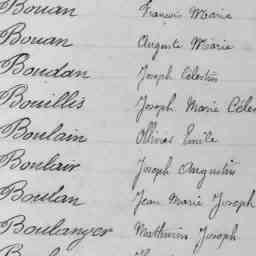 Bouan François Marie
Bouan Auguste Marie
Boudan Joseph Célestin
Bouillis Joseph Marie
Boulain Ollivier Emile
Boulair Joseph Augustin
Boulan Jean Marie Joseph
Boulanger Mathurin Joseph